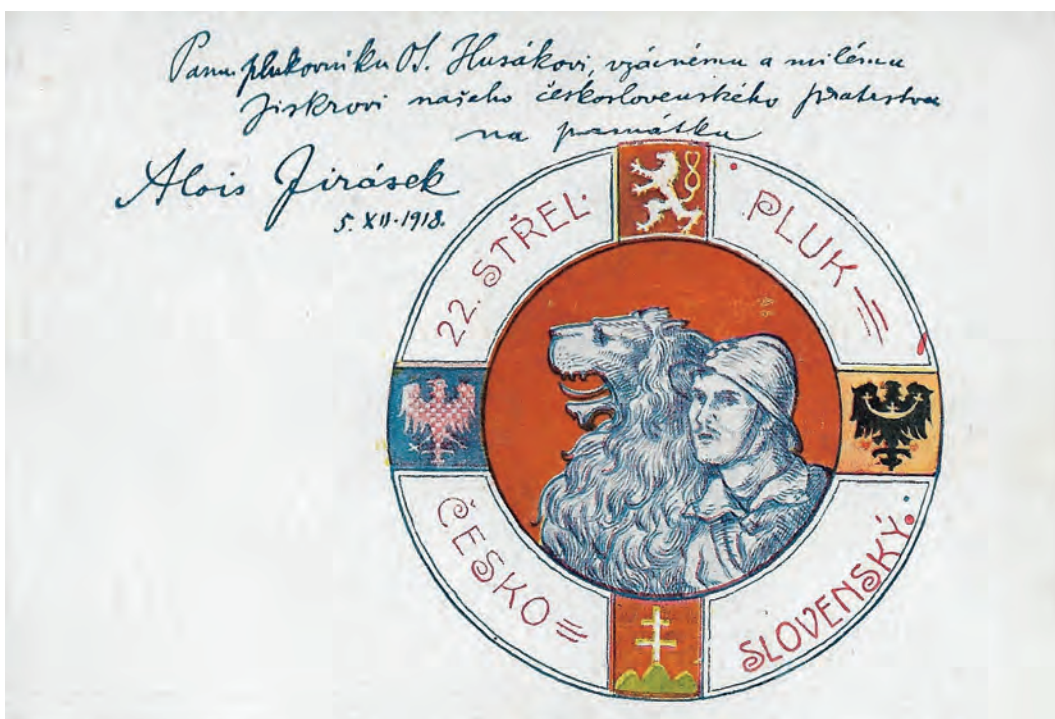 Panu plukovníku O. Husákovi, vzácnému a milému
Jiskrovi našeho československého bratrstva
na památku
Alois Jirásek
5. XII. 1918.
22. STŘEL. PLUK
ČESKO=
SLOVENSKÝ.